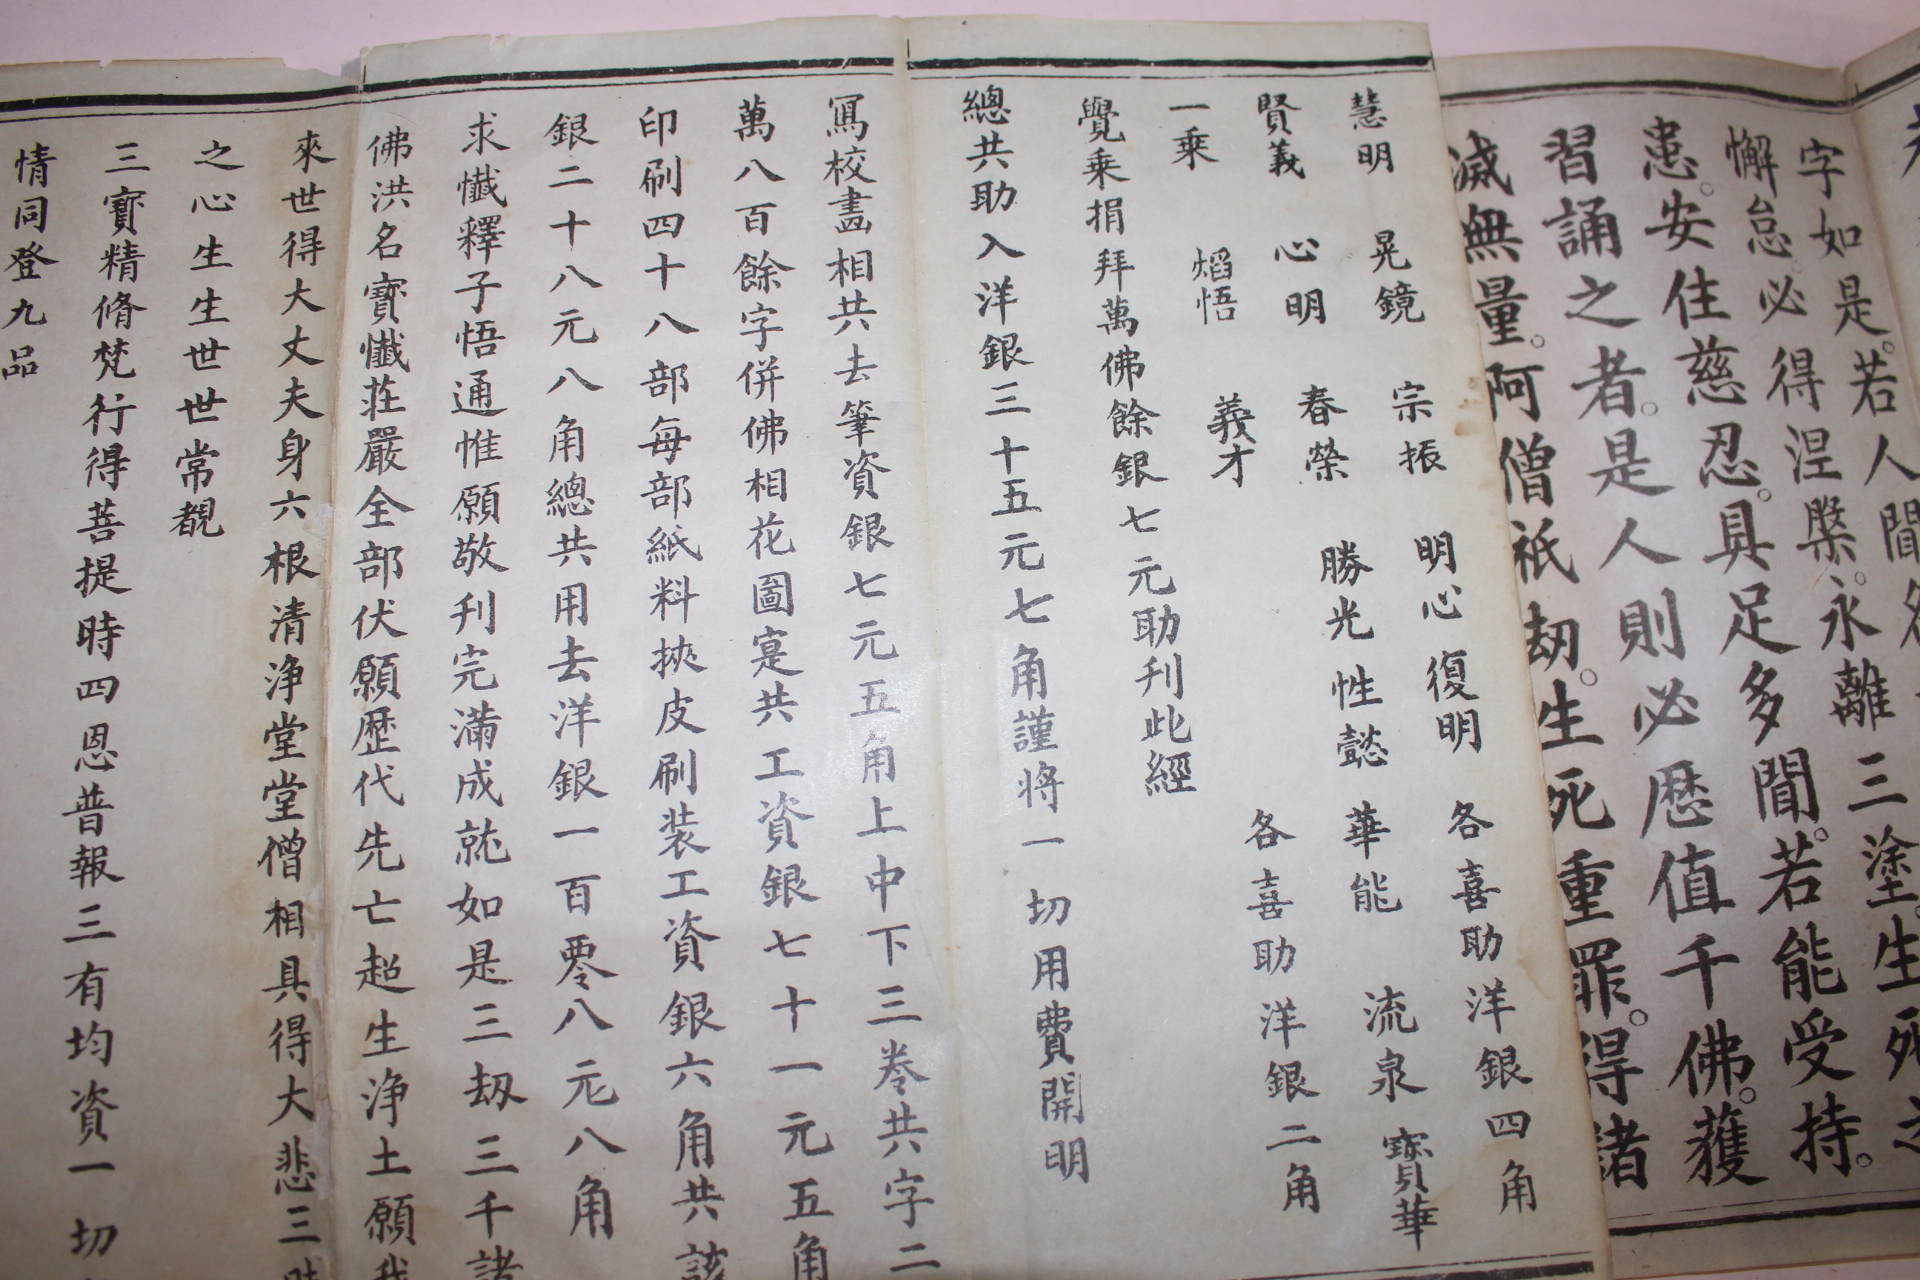 聞
字如是。若人
懈怠。必得涅槃。永離三塗。生死
患。安住慈忍。具足多聞。若能受持。
習誦之者。是人則必歷值千佛。獲
滅無量。阿僧祇劫。生死重罪。得諸
慧明 晃鏡 宗振 明心 復明 各喜助洋銀四角
賢義 心明 春榮 勝光 性懿 華能 流泉 寶華
一乘 熖悟 義才 各喜助洋銀二角
覺乘捐拜萬佛餘銀七元助刊此經
總共助入洋銀三十五元七角謹將一切用費開明
寫校畵相共去筆資銀七元五角上中下三卷共字二
萬八百餘字併佛相花圖寔共工資銀七十一元五角
印刷四十八部每部紙料挾皮刷裝工資銀六角共該
銀二十八元八角總共用去洋銀一百零八元八角
求懺釋子悟通惟願敬刋完滿成就如是三劫三千諸
佛洪名寶懺莊嚴全部伏願歷代先亡超生浄土願我
來世得大丈夫身六根清浄堂堂僧相具得大悲三時
之心生生世世常覩
三寶精脩梵行得菩提時四恩普報三有均資一切
情同登九品